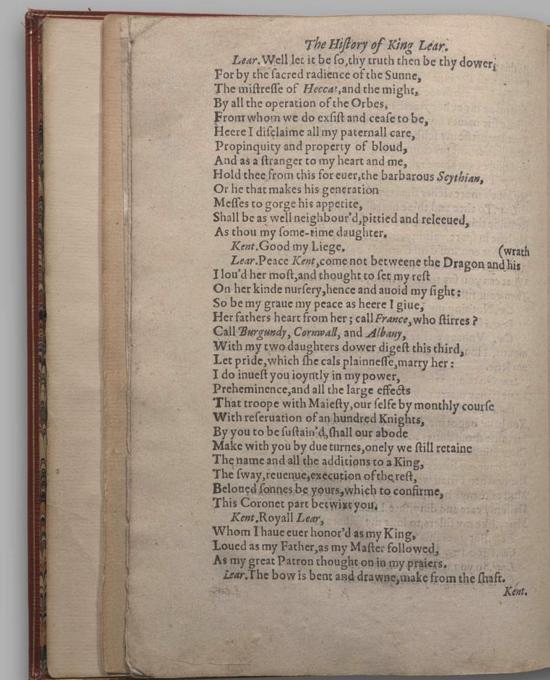 The Hiſtory of King Lear.
Lear. Well let it be ſo, thy truth then be thy dower,
For by the ſacred radience of the Sunne,
The miſtreſſe of Heccat, and the might,
By all the operation of the Orbes,
From whom we do exſiſt and ceaſe to be,
Heere I diſclaime all my paternall care,
Propinquity and property of bloud,
And as a ſtranger to my heart and me,
Hold thee from this for euer, the barbarous Scythian,
Or he that makes his generation
Meſſes to gorge his appetite,
Shall be as well neighbour'd, pittied and releeued,
As thou my ſome-time daughter.
Kent. Good my Liege.
(wrath
Lear. Peace Kent, come not betweene the Dragon and his
I lou'd her moſt, and thought to ſet my reſt
On her kinde nurſery, hence and auoid my ſight:
So be my graue my peace as heere I giue,
Her fathers heart from her; call France, who ſtirres?
Call Burgundy, Cornwall, and Albany,
With my two daughters dower digeſt this third,
Let pride, which ſhe cals plainneſſe, marry her:
I do inueſt you ioyntly in my power,
Preheminence, and all the large effects
That troope with Maieſty, our ſelfe by monthly courſe
With reſeruation of an hundred Knights,
By you to be ſuſtain'd, ſhall our abode
Make with you by due turnes, onely we ſtill retaine
The name and all the additions to a King,
The ſway, reuenue, execution of the reſt,
Beloued ſonnes be yours, which to confirme,
This Coronet part betwixt you.
Kent. Royall Lear,
Whom I haue euer honor'd as my King,
Loued as my Father, as my Maſter followed,
As my great Patron thought on in my praiers.
Lear. The bow is bent and drawne, make from the ſhaft.
Kent.